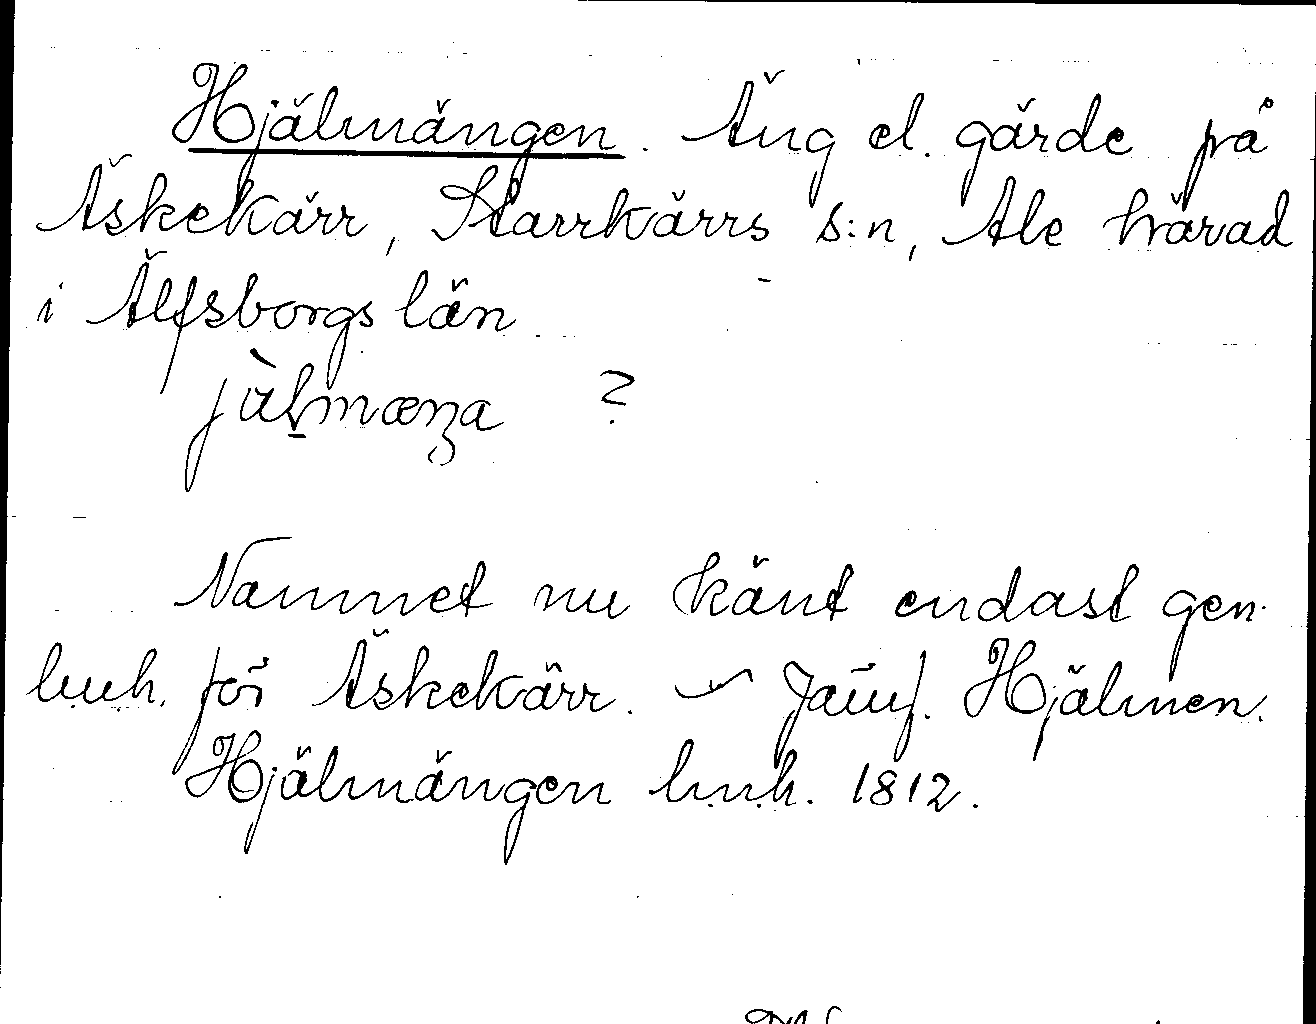 Hjälmängen. Äng el. gärde på
Äskekärr, Starrkärrs s:n, Ale härad
i Älfsborgs län
jàl̠mæŋa ?
Namnet nu känt endast gen.
lmh. för Äskekärr. – Jämf. Hjälmen.
Hjälmängen lmh. 1812.